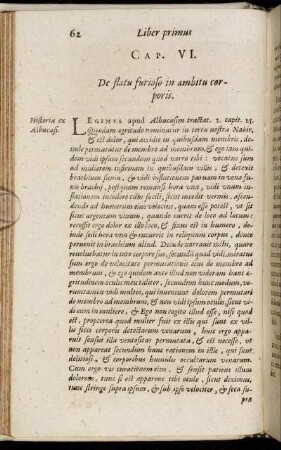 62 Liber primus
CAP. VI.
De flatu furioso in ambitu cor-
poris.
Historia ex
Albucasi.
LEGIMUS apud Albucasim tractat. 2. capit. 25.
Quædam ægritudo nominatur in terra nostra Nabir,
& est dolor, qui accidit in quibusdam membris, de-
inde permutatur de membro ad membrum, & ego iam qui-
dem vidi ipsum secundum quod narro tibi: vocatus sum
ad mulierem infirmam in quibusdam villis, & detexit
brachium suum, & vidi inflaturam parvam in vena su-
inflationem incedere cum
dendo ad superiora velociter, quam esse potest, si
sicut argentum vivum, quando currit de loco ad locum:
recessit ergo dolor ex illo loco, & fixus est in humero, de-
inde sedit hora una & cucurrit in reliquum corpus, donec
pervenit in brachium aliud. Deinde narravit mihi, quod
revolvebatur in toto corpore suo, secundum quod vidi, miratus
sum ergo de velocitate permutationis eius de membro ad
membrum, & ego quidem ante illud non videram hanc æ-
gritudinem oculis meis
runtamen vidi
de membro ad membrum, & non vidi ipsum oculis, sicut vi-
di eum in muliere, & Ego non cogito illud esse, nisi quod
est, propterea quod mulier fuit ex illis qui sunt ex vil-
lis sicci corporis detectarum venarum, & huic ergo appa-
ruit sensui illa ventositas permutata, & est necesse, ut
non appareat secundum hanc rationem in illis, qui sunt
delitiosi, & corporibus humidis occultarum venarum.
Cum ergo vis curationem eius, & sensit patiens illum
dolorem, tunc si est apparens tibi oculis, sicut diximus,
tunc stringe supra ipsum, & sub ipso velociter, & seca su-
pra